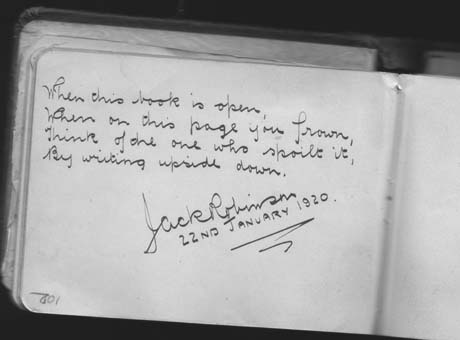 When this book is open,
When on this page you frown,
Think of the one who spoilt it,
By writing upside down.
Jack Robinson
22ND JANUARY 1920.
801